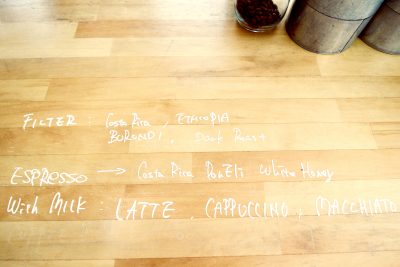 FILTER : Costa Rica, ETHIOPIA
BURUNDI, Dark Roast
ESPRESSO → Costa Rica White Honey
With MILK : LATTE, CAPPUCCINO, MACCHIATO